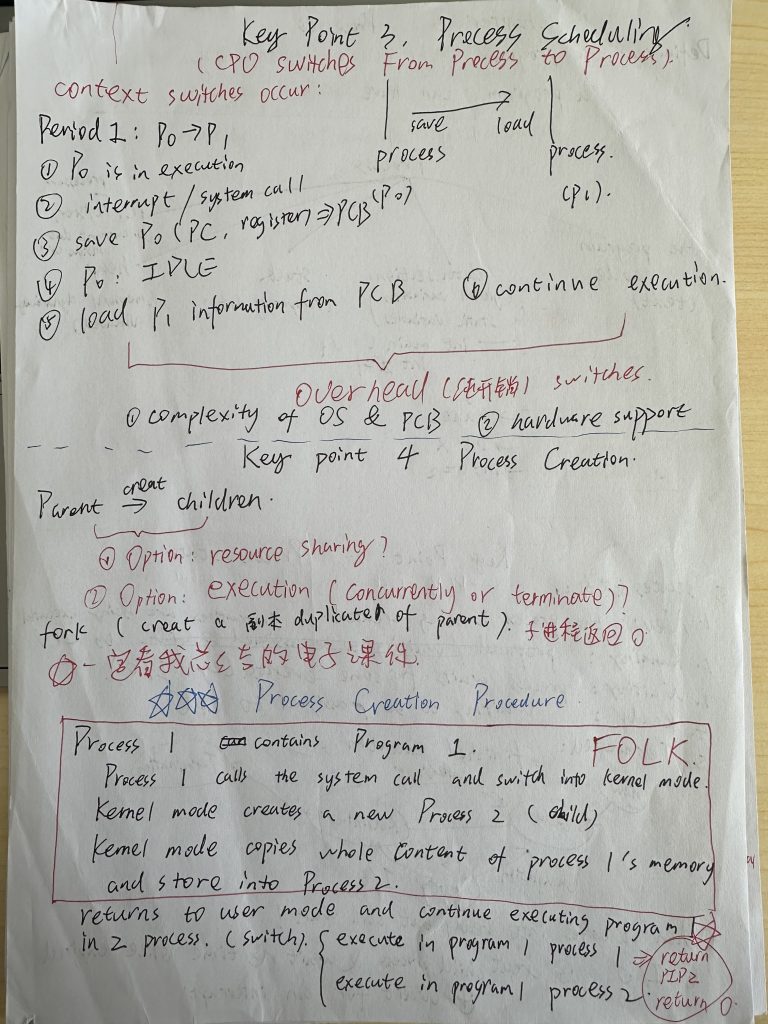 Key Point 3. Process Scheduling.
(CPO switches From Process to Process).
context switches occur:
Period 1: P0→P1
save load
process process.
(P1).
① P0 is in execution
② interrupt / system call
③ save P0 (PC, register)⇒PCB(P0)
④ P0: IDLE
⑤ load P1 information from PCB ⑥ continue execution.
Overhead (纯开销) switches.
① complexity of OS & PCB ② hardware support
Key point 4 Process Creation.
creat
Parent → children.
① Option: resource sharing?
② Option: execution (concurrently or terminate)?
fork (creat a 副本 duplicated of parent). 子进程返回 0
☆一定看我总结的电子课件.
☆☆☆ Process Creation Procedure
Process 1 contains Program 1. FOLK.
Process 1 calls the system call and switch into kernel mode.
Kernel mode creates a new Process 2 (child)
Kernel mode copies whole content of process 1's memory
and store into Process 2.
returns to user mode and continue executing program 1 ☆
in 2 process. (switch). { execute in program 1 process 1 ⇒ return
PIP2
execute in program 1 process 2. return 0